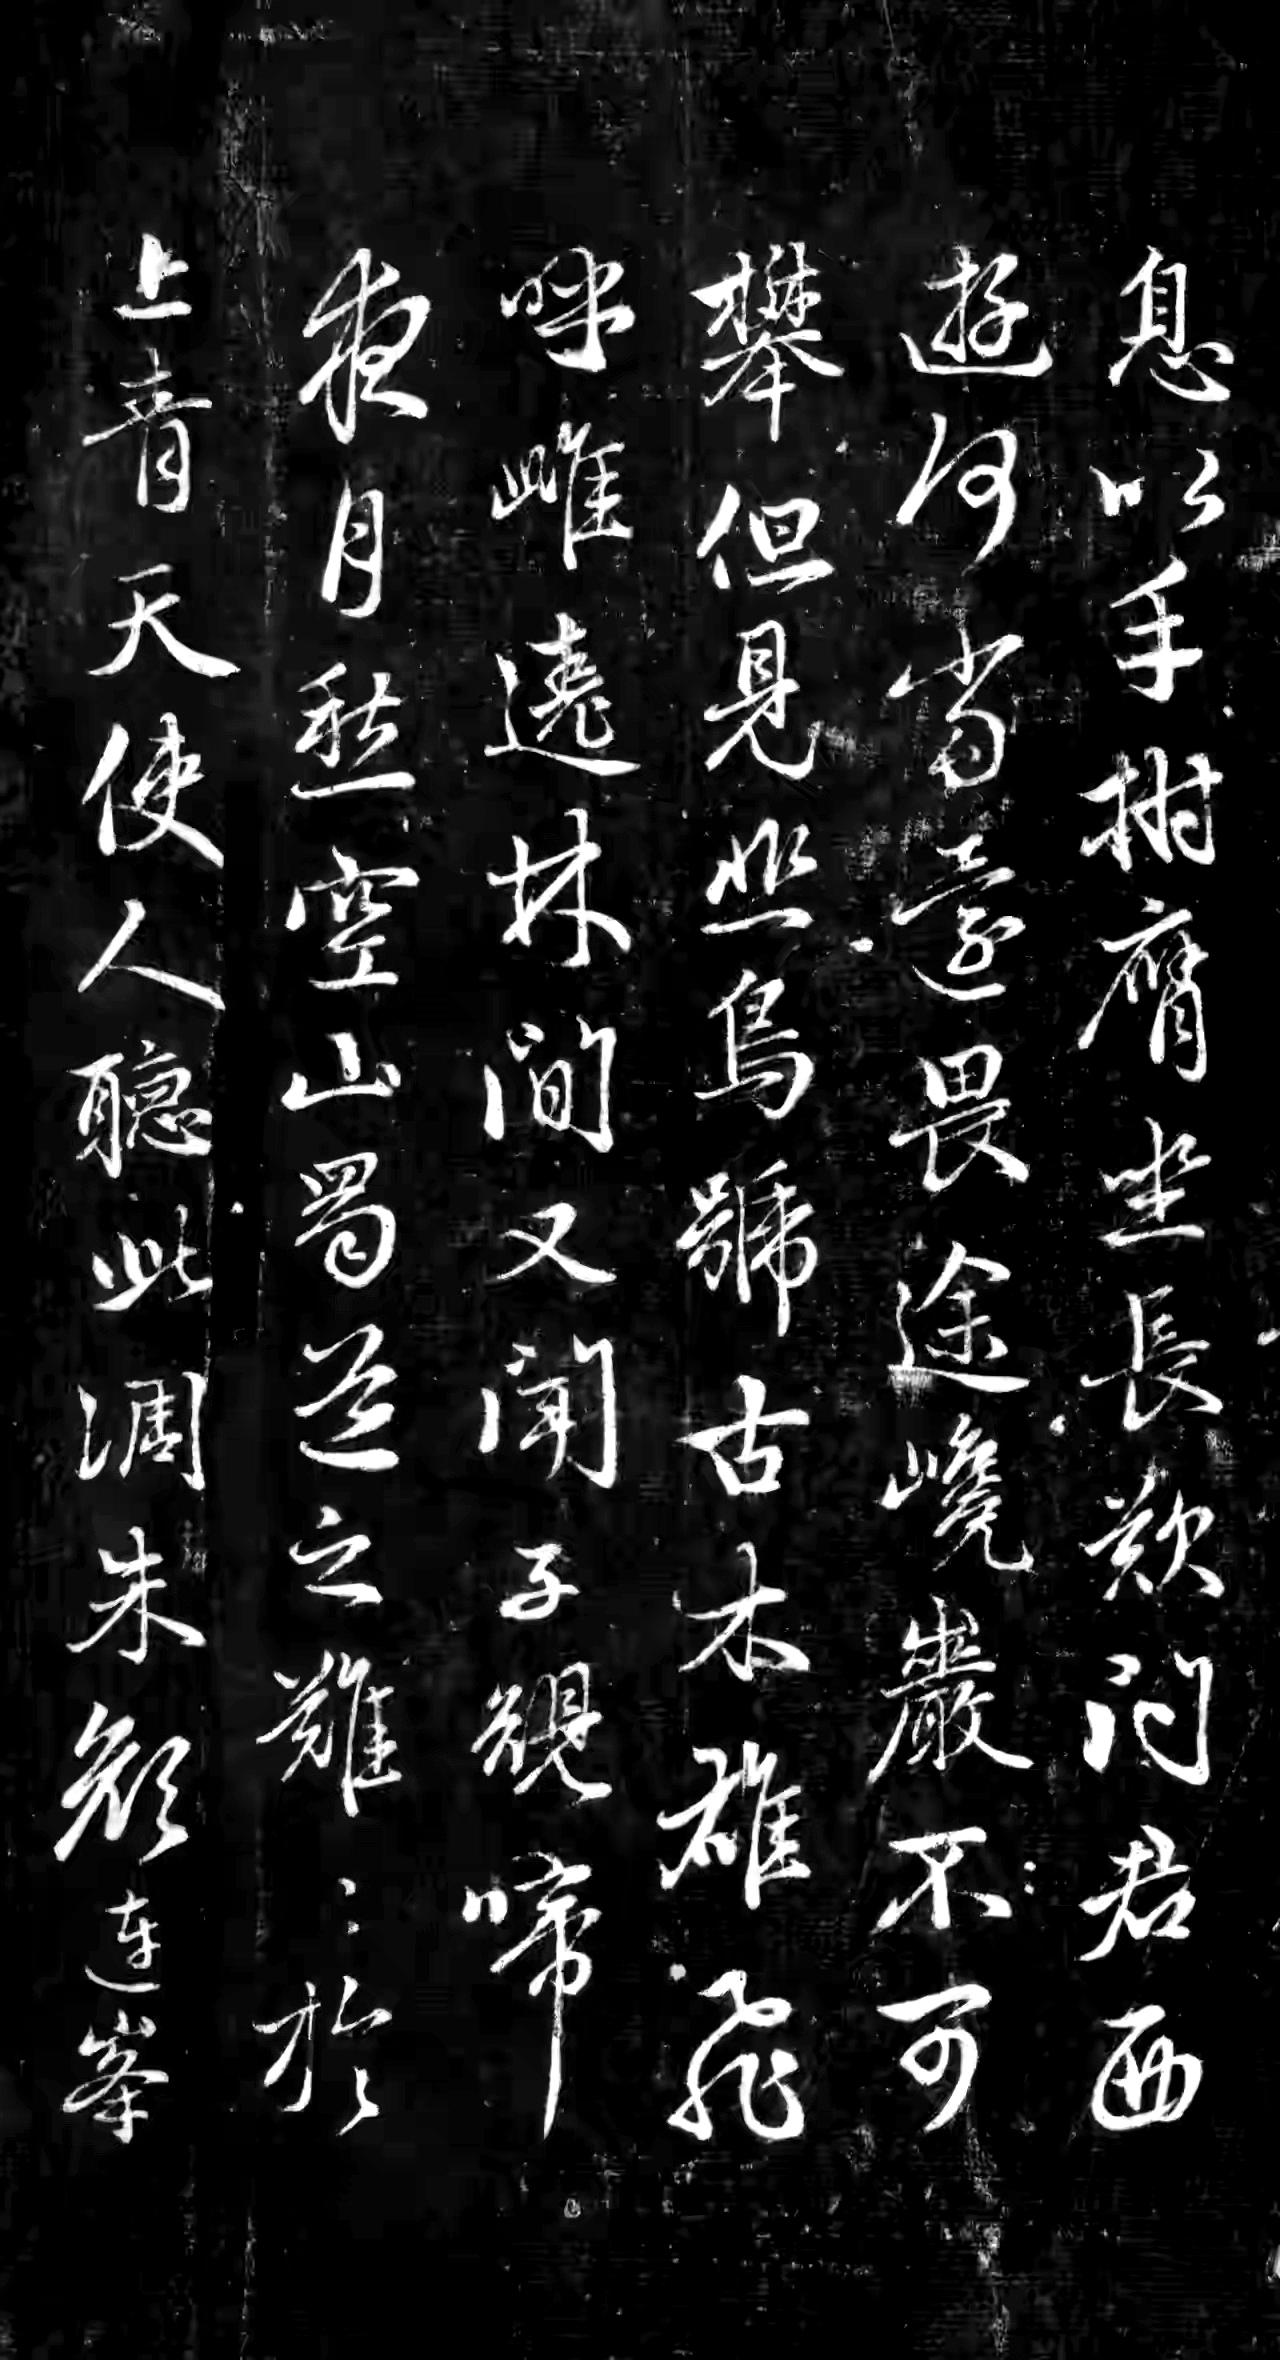 息以手拊膺坐長歎问君西
遊何當還畏途巉巖不可
攀但見悲鳥號古木雄飛
呼雌遶林间又闻子規啼
夜月愁空山蜀道之難〻於
上青天使人聽此凋朱顏連峯